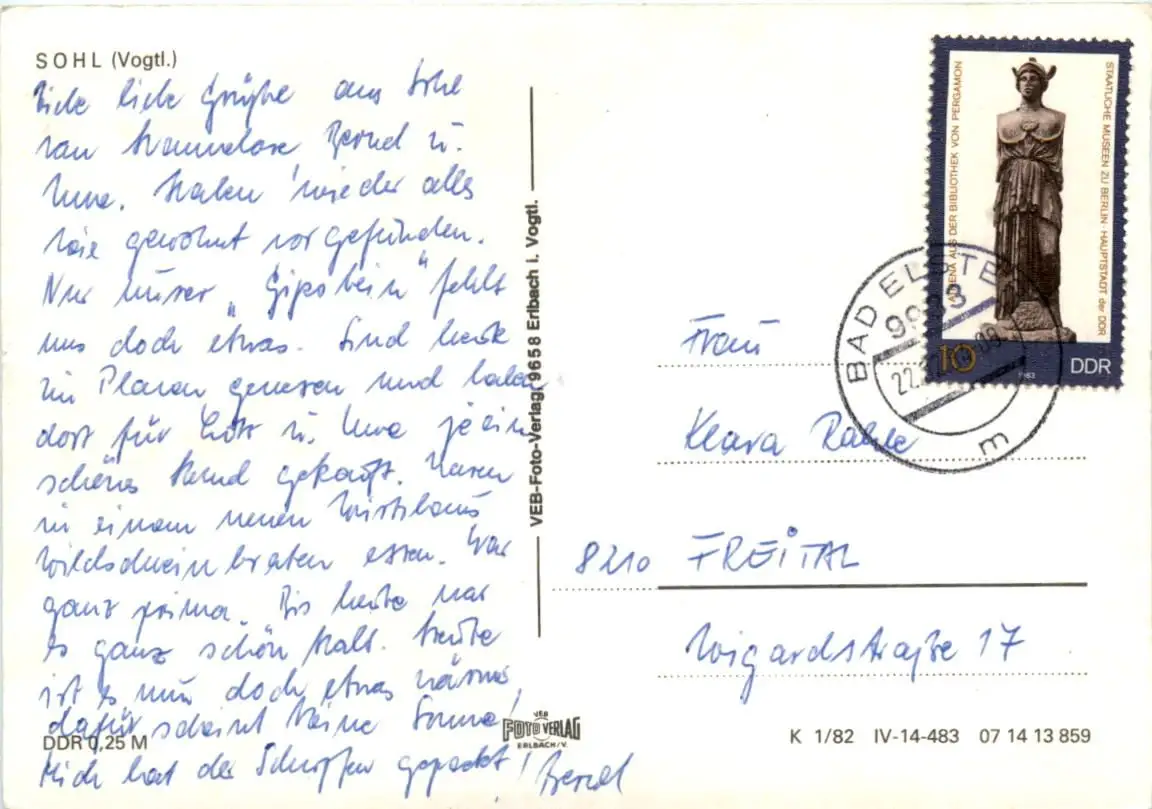 SOHL (Vogtl.)
Viele liebe Grüße aus Sohl
von Hannelore Bernd u.
Uwe. Haben wieder alles
wie gewohnt vorgefunden.
Nur unser "Gipsbein" fehlt
uns doch etwas. Sind heute
in Plauen gewesen und haben
dort für Lutz u. Uwe je ein
schönes Hemd gekauft. Waren
in einem neuen Wirtshaus
Wildschweinbraten essen. War
ganz prima. Bis heute war
es ganz schön kalt. Heute
ist es nun doch etwas wärmer,
dafür scheint keine Sonne!
Mich hat der Schnupfen gepackt! Bernd
DDR 0,25 M
VEB-Foto-Verlag, 9658 Erlbach i. Vogtl.
VEB
FOTO VERLAG
ERLBACH/V.
ATHENA AUS DER BIBLIOTHEK VON PERGAMON
STAATLICHE MUSEEN ZU BERLIN · HAUPTSTADT der DDR
10
1983
DDR
BAD ELSTER
9933
22.
m
Frau
Klara
8210 FREITAL
Wigardstraße 17
K 1/82 IV-14-483 07 14 13 859